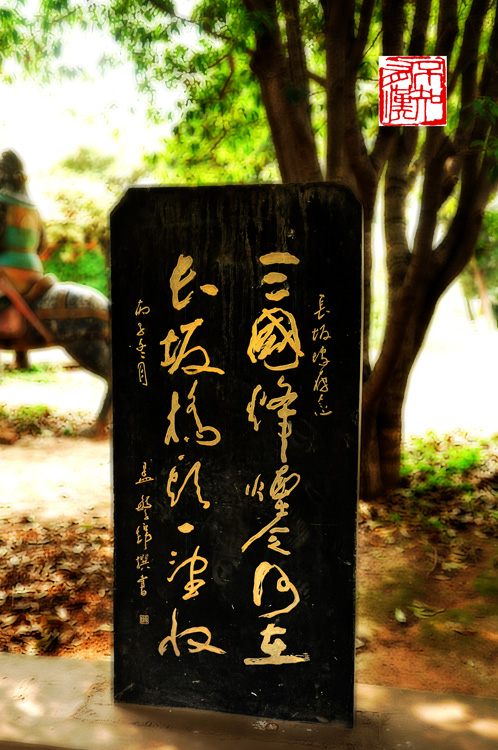 長坂坡
三國烽煙今何在
长坂橋頭一望收
丙子冬月
孟繁锦撰書